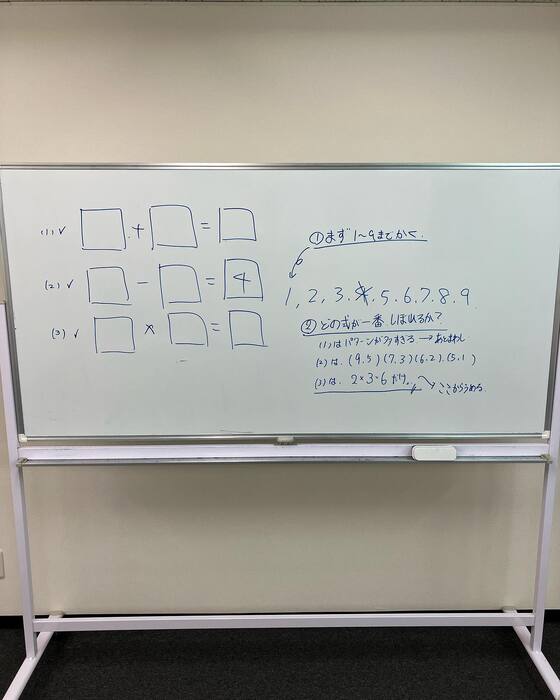 (1) ✓ □ + □ = □
(2) ✓ □ - □ = 4
(3) ✓ □ × □ = □
①まず1~9までかく.
1, 2, 3, 4, 5, 6, 7, 8, 9.
②どの式が一番しぼれるか?
(1)はパターンが多すぎる → あとまわし
(2)は、(9.5)(7.3)(6.2).(5.1)
(3)は、2×3=6だけ。
ここからうめる.